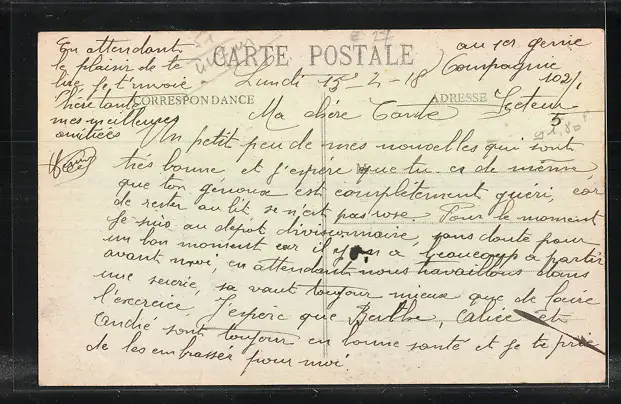 CARTE POSTALE
CORRESPONDANCE
ADRESSE
au 1er genie
Compagnie
102/1
Secteur
5
Lundi 15-2-18
Ma chère Tante
Un petit peu de mes nouvelles qui sont
très bonne, et j'espère que tu es de même,
que ton génoux est complètement guéri, car
de rester au lit, se n'est pas rose. Pour le moment
je suis au depot divisionnaire, sans doute pour
un bon moment car il y en a beaucoup a partir
avant moi, en attendant nous travaillons dans
une scierie, sa vaut toujour mieux que de faire
l'exercice. J'espère que Berthe, Calice et
André sont toujour en bonne santé et je te prie
de les embrasser pour moi
En attendant
le plaisir de te
lire je t'envoie
Chère tante
mes meilleures
amitiées